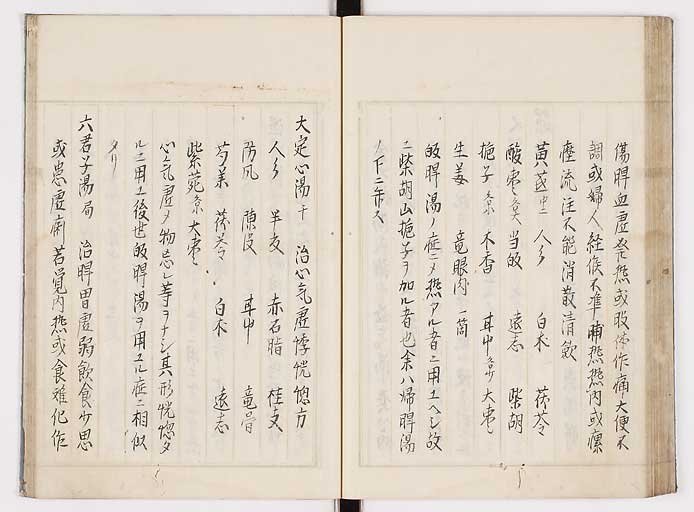 傷脾血虚発熱或肢体作痛大便不
調或婦人経候不準晡熱熱内或瘰
癧流注不能消散清飲
黄茋 人参 白朮 茯苓
酸棗 当皈 遠志 柴胡
梔子 木香 甘中 大棗
生姜 竜眼肉一箇
皈脾湯ノ症ニメ熱アル者ニ用ユヘシ故
ニ柴胡山梔子ヲ加ル者也余ハ帰脾湯
ノ下ニ
大定心湯千 治心気虚悸恍惚方
人参 半夏 赤石脂 桂支
防風 陳皮 甘中 竜骨
芍薬 茯苓 白朮 遠志
紫苑 大棗
心気虚メ物忘レ等ヲナシ其形恍惚タ
ルニ用ユ後世皈脾湯ヲ用ユル症ニ相似
タリ
六君子湯局 治脾胃虚弱飲食少思
或患虚痢若覚内熱或食難化作